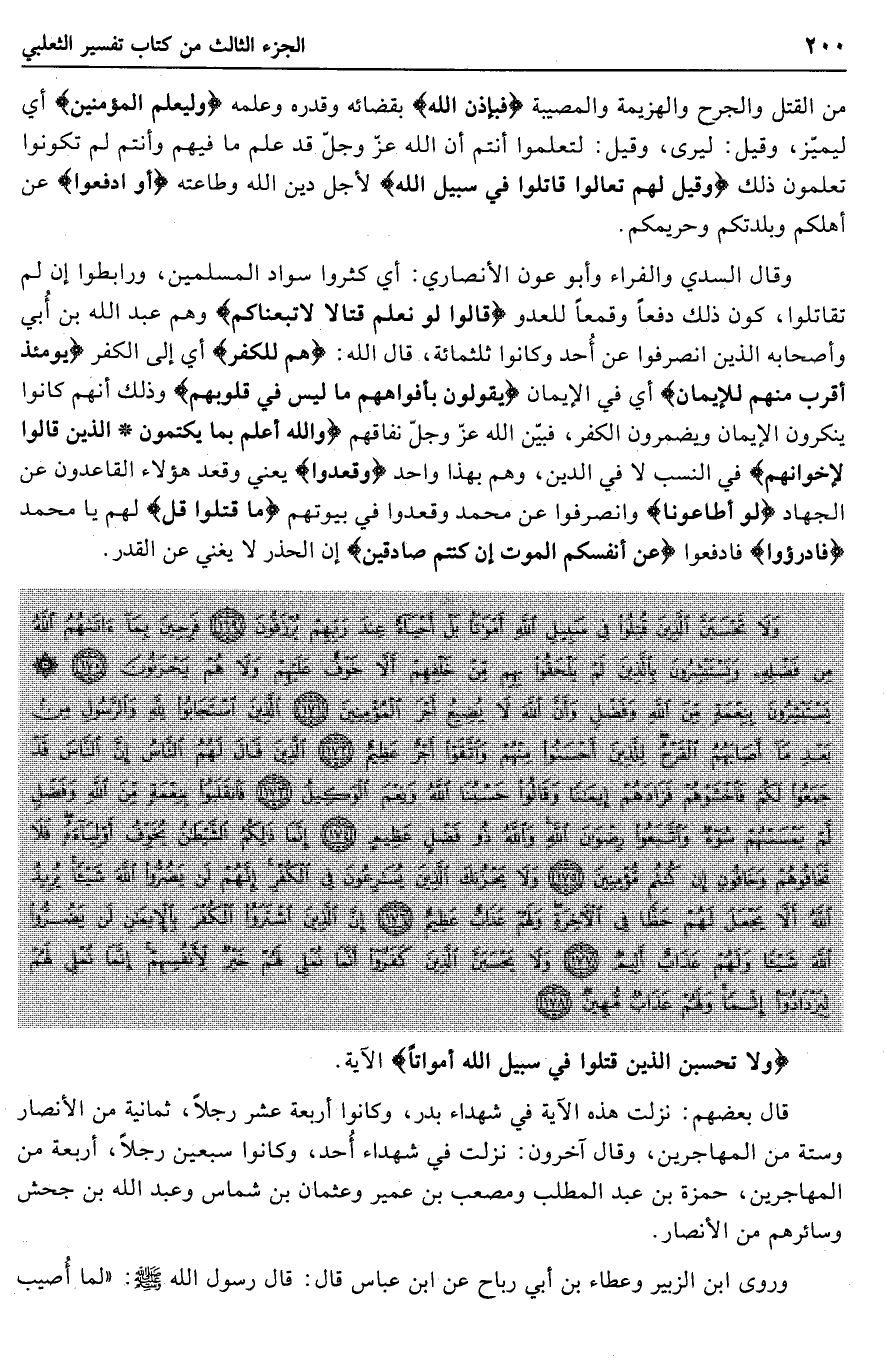 ٢٠٠ الجزء الثالث من كتاب تفسير الثعلبي
من القتل والجرح والهزيمة والمصيبة ﴿فبإذن الله﴾ بقضائه وقدره وعلمه ﴿وليعلم المؤمنين﴾ أي
ليميّز، وقيل: ليرى، وقيل: لتعلموا أنتم أن الله عزّ وجلّ قد علم ما فيهم وأنتم لم تكونوا
تعلمون ذلك ﴿وقيل لهم تعالوا قاتلوا في سبيل الله﴾ لأجل دين الله وطاعته ﴿أو ادفعوا﴾ عن
أهلكم وبلدتكم وحريمكم.
وقال السدي والفراء وأبو عون الأنصاري: أي كثروا سواد المسلمين، ورابطوا إن لم
تقاتلوا، كون ذلك دفعاً وقمعاً للعدو ﴿قالوا لو نعلم قتالا لاتبعناكم﴾ وهم عبد الله بن أُبي
وأصحابه الذين انصرفوا عن أُحد وكانوا ثلثمائة، قال الله: ﴿هم للكفر﴾ أي إلى الكفر ﴿يومئذ
أقرب منهم للإيمان﴾ أي في الإيمان ﴿يقولون بأفواههم ما ليس في قلوبهم﴾ وذلك أنهم كانوا
ينكرون الإيمان ويضمرون الكفر، فبيّن الله عزّ وجلّ نفاقهم ﴿والله أعلم بما يكتمون * الذين قالوا
لإخوانهم﴾ في النسب لا في الدين، وهم بهذا واحد ﴿وقعدوا﴾ يعني وقعد هؤلاء القاعدون عن
الجهاد ﴿لو أطاعونا﴾ وانصرفوا عن محمد وقعدوا في بيوتهم ﴿ما قتلوا قل﴾ لهم يا محمد
﴿فادرؤوا﴾ فادفعوا ﴿عن أنفسكم الموت إن كنتم صادقين﴾ إن الحذر لا يغني عن القدر.
وَلَا تَحْسَبَنَّ ٱلَّذِينَ قُتِلُوا۟ فِى سَبِيلِ ٱللَّهِ أَمْوَٰتًۢا بَلْ أَحْيَآءٌ عِندَ رَبِّهِمْ يُرْزَقُونَ ١٦٩ فَرِحِينَ بِمَآ ءَاتَىٰهُمُ ٱللَّهُ
مِن فَضْلِهِۦ وَيَسْتَبْشِرُونَ بِٱلَّذِينَ لَمْ يَلْحَقُوا۟ بِهِم مِّنْ خَلْفِهِمْ أَلَّا خَوْفٌ عَلَيْهِمْ وَلَا هُمْ يَحْزَنُونَ ١٧٠ ۞
يَسْتَبْشِرُونَ بِنِعْمَةٍ مِّنَ ٱللَّهِ وَفَضْلٍ وَأَنَّ ٱللَّهَ لَا يُضِيعُ أَجْرَ ٱلْمُؤْمِنِينَ ١٧١ ٱلَّذِينَ ٱسْتَجَابُوا۟ لِلَّهِ وَٱلرَّسُولِ مِنۢ
بَعْدِ مَآ أَصَابَهُمُ ٱلْقَرْحُ لِلَّذِينَ أَحْسَنُوا۟ مِنْهُمْ وَٱتَّقَوْا۟ أَجْرٌ عَظِيمٌ ١٧٢ ٱلَّذِينَ قَالَ لَهُمُ ٱلنَّاسُ إِنَّ ٱلنَّاسَ قَدْ
جَمَعُوا۟ لَكُمْ فَٱخْشَوْهُمْ فَزَادَهُمْ إِيمَٰنًا وَقَالُوا۟ حَسْبُنَا ٱللَّهُ وَنِعْمَ ٱلْوَكِيلُ ١٧٣ فَٱنقَلَبُوا۟ بِنِعْمَةٍ مِّنَ ٱللَّهِ وَفَضْلٍ
لَّمْ يَمْسَسْهُمْ سُوٓءٌ وَٱتَّبَعُوا۟ رِضْوَٰنَ ٱللَّهِ وَٱللَّهُ ذُو فَضْلٍ عَظِيمٍ ١٧٤ إِنَّمَا ذَٰلِكُمُ ٱلشَّيْطَٰنُ يُخَوِّفُ أَوْلِيَآءَهُۥ فَلَا
تَخَافُوهُمْ وَخَافُونِ إِن كُنتُم مُّؤْمِنِينَ ١٧٥ وَلَا يَحْزُنكَ ٱلَّذِينَ يُسَٰرِعُونَ فِى ٱلْكُفْرِ إِنَّهُمْ لَن يَضُرُّوا۟ ٱللَّهَ شَيْـًٔا يُرِيدُ
ٱللَّهُ أَلَّا يَجْعَلَ لَهُمْ حَظًّا فِى ٱلْـَٔاخِرَةِ وَلَهُمْ عَذَابٌ عَظِيمٌ ١٧٦ إِنَّ ٱلَّذِينَ ٱشْتَرَوُا۟ ٱلْكُفْرَ بِٱلْإِيمَٰنِ لَن يَضُرُّوا۟
ٱللَّهَ شَيْـًٔا وَلَهُمْ عَذَابٌ أَلِيمٌ ١٧٧ وَلَا يَحْسَبَنَّ ٱلَّذِينَ كَفَرُوٓا۟ أَنَّمَا نُمْلِى لَهُمْ خَيْرٌ لِّأَنفُسِهِمْ إِنَّمَا نُمْلِى لَهُمْ
لِيَزْدَادُوٓا۟ إِثْمًا وَلَهُمْ عَذَابٌ مُّهِينٌ ١٧٨
﴿ولا تحسبن الذين قتلوا في سبيل الله أمواتاً﴾ الآية.
قال بعضهم: نزلت هذه الآية في شهداء بدر، وكانوا أربعة عشر رجلاً، ثمانية من الأنصار
وستة من المهاجرين، وقال آخرون: نزلت في شهداء أُحد، وكانوا سبعين رجلاً، أربعة من
المهاجرين، حمزة بن عبد المطلب ومصعب بن عمير وعثمان بن شماس وعبد الله بن جحش
وسائرهم من الأنصار.
وروى ابن الزبير وعطاء بن أبي رباح عن ابن عباس قال: قال رسول الله ﷺ: «لما أُصيب